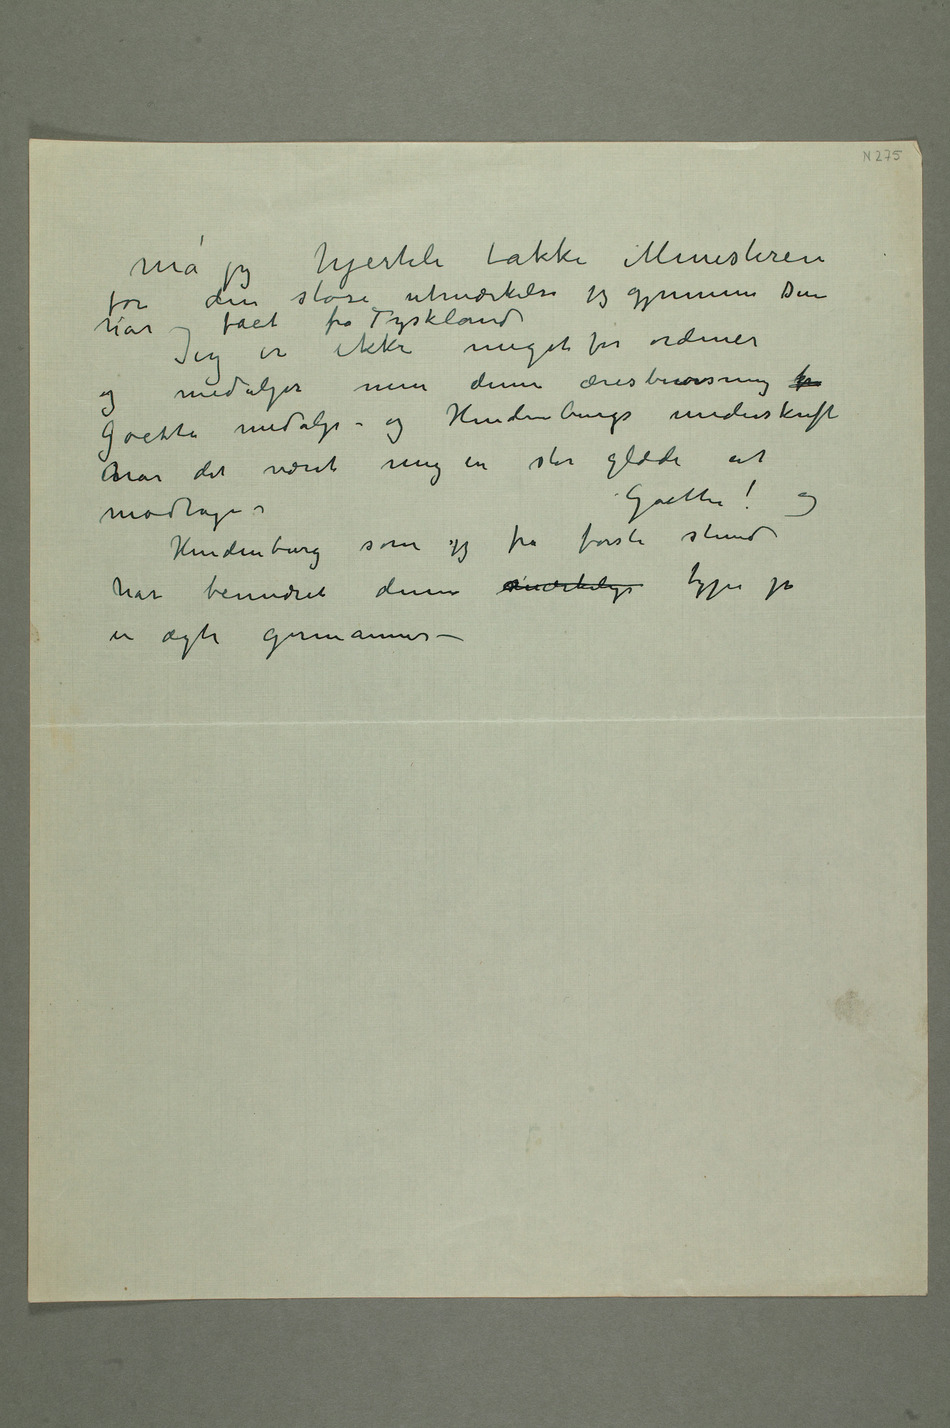 N 275
Må jeg hjerteli takke Ministeren
for den store utmærkelse jeg gjennem Dem
har fået fra Tyskland
Jeg er ikke meget for ordener
og medaljer men denne æresbevisning
Goethe medalje – og Hindenburgs underskrift
har det været mig en stor glæde at
modtage –
Goethe! og
Hindenburg som jeg fra første stund
har beundret denne mærkelige type på
en ægte germanner –